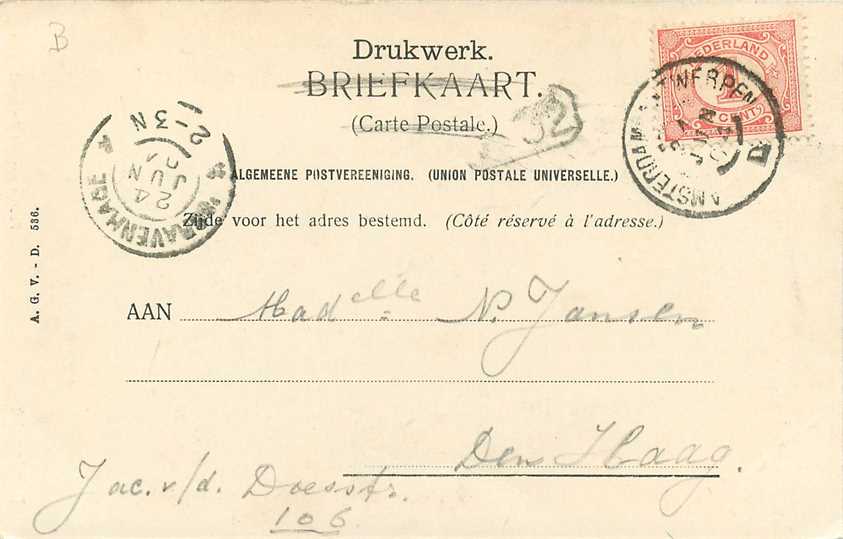 B
Drukwerk.
BRIEFKAART.
(Carte Postale.)
ALGEMEENE POSTVEREENIGING. (UNION POSTALE UNIVERSELLE.)
Zijde voor het adres bestemd. (Côté réservé à l'adresse.)
AAN Madelle N. Jansen
Den Haag.
Jac. v/d. Doesstr.
106
A. G. V. - D. 536.
NEDERLAND
CENT
AMSTERDAM ANTWERPEN
D
'S GRAVENHAGE
24
JUN
2-3N